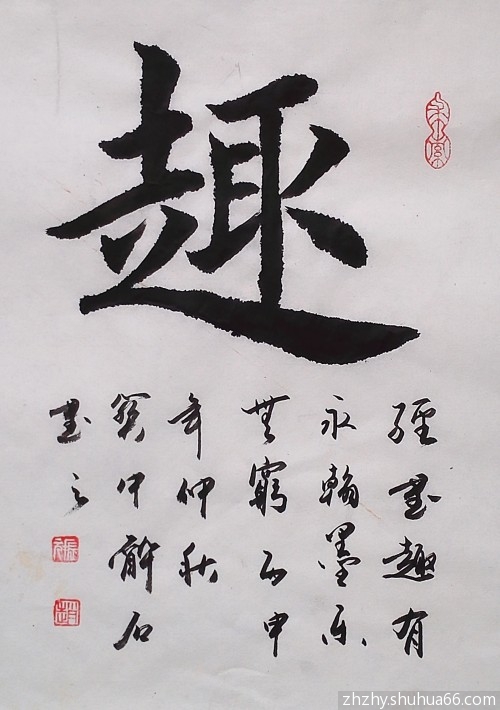 趣
經書趣有
永翰墨樂
無窮丙申
年仲秋
石
書之
zhzhy.shuhua66.com